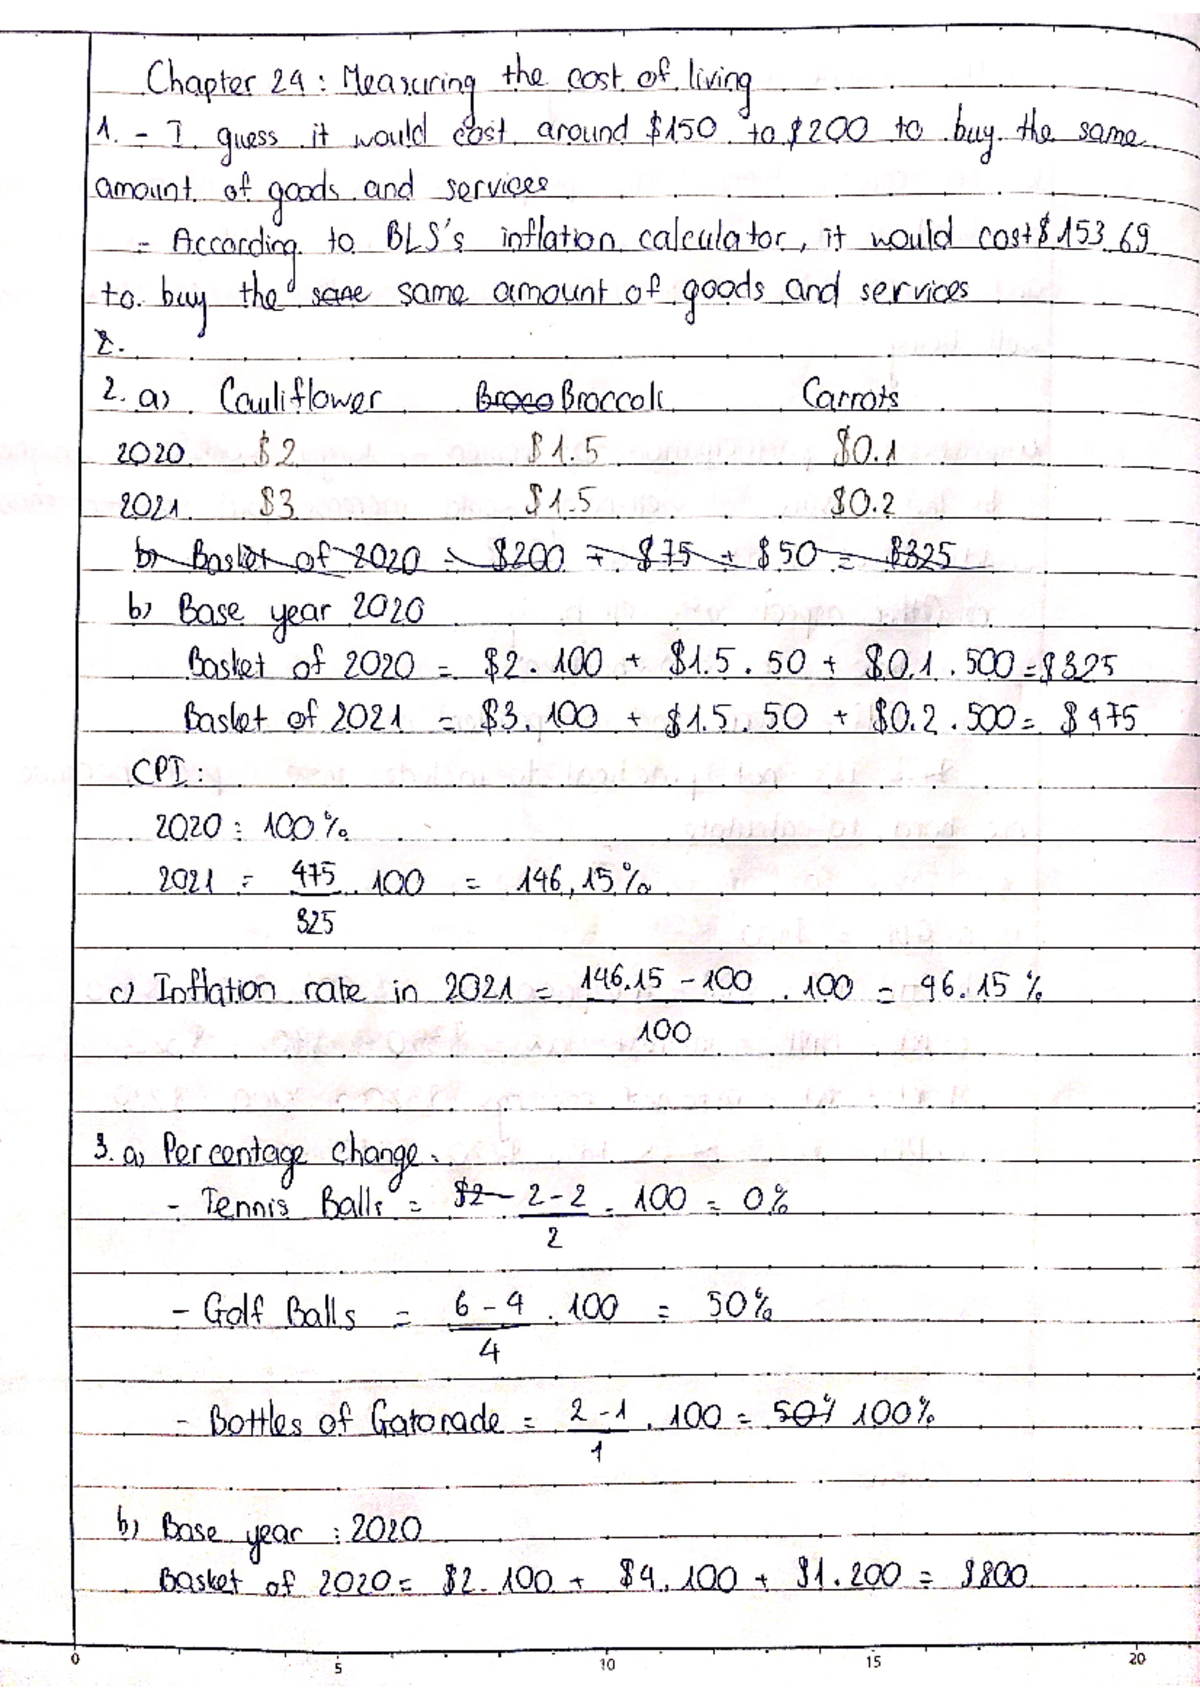 Chapter 24 : Measuring the cost of living
1. - I guess it would cost around $150 to $200 to buy the same
amount of goods and services
- According to BLS's inflation calculator, it would cost $153.69
to buy the same same amount of goods and services
2.
2. a) Cauliflower Broco Broccoli Carrots
2020 $2 $1.5 $0.1
2021 $3 $1.5 $0.2
b) Basket of 2020 = $200 + $75 + $50 = $325
b) Base year 2020
Basket of 2020 = $2 . 100 + $1.5 . 50 + $0.1 . 500 = $325
Basket of 2021 = $3 . 100 + $1.5 . 50 + $0.2 . 500 = $475
CPI :
2020 : 100%
2021 = 475/325 . 100 = 146,15%
c) Inflation rate in 2021 = (146.15 - 100)/100 . 100 = 46.15 %
3. a) Percentage change :
- Tennis Balls = $2 - (2 - 2)/2 . 100 = 0%
- Golf Balls = (6 - 4)/4 . 100 = 50%
- Bottles of Gatorade = (2 - 1)/1 . 100 = 50% 100%
b) Base year : 2020
Basket of 2020 = $2 . 100 + $4 . 100 + $1 . 200 = $800
0 5 10 15 20